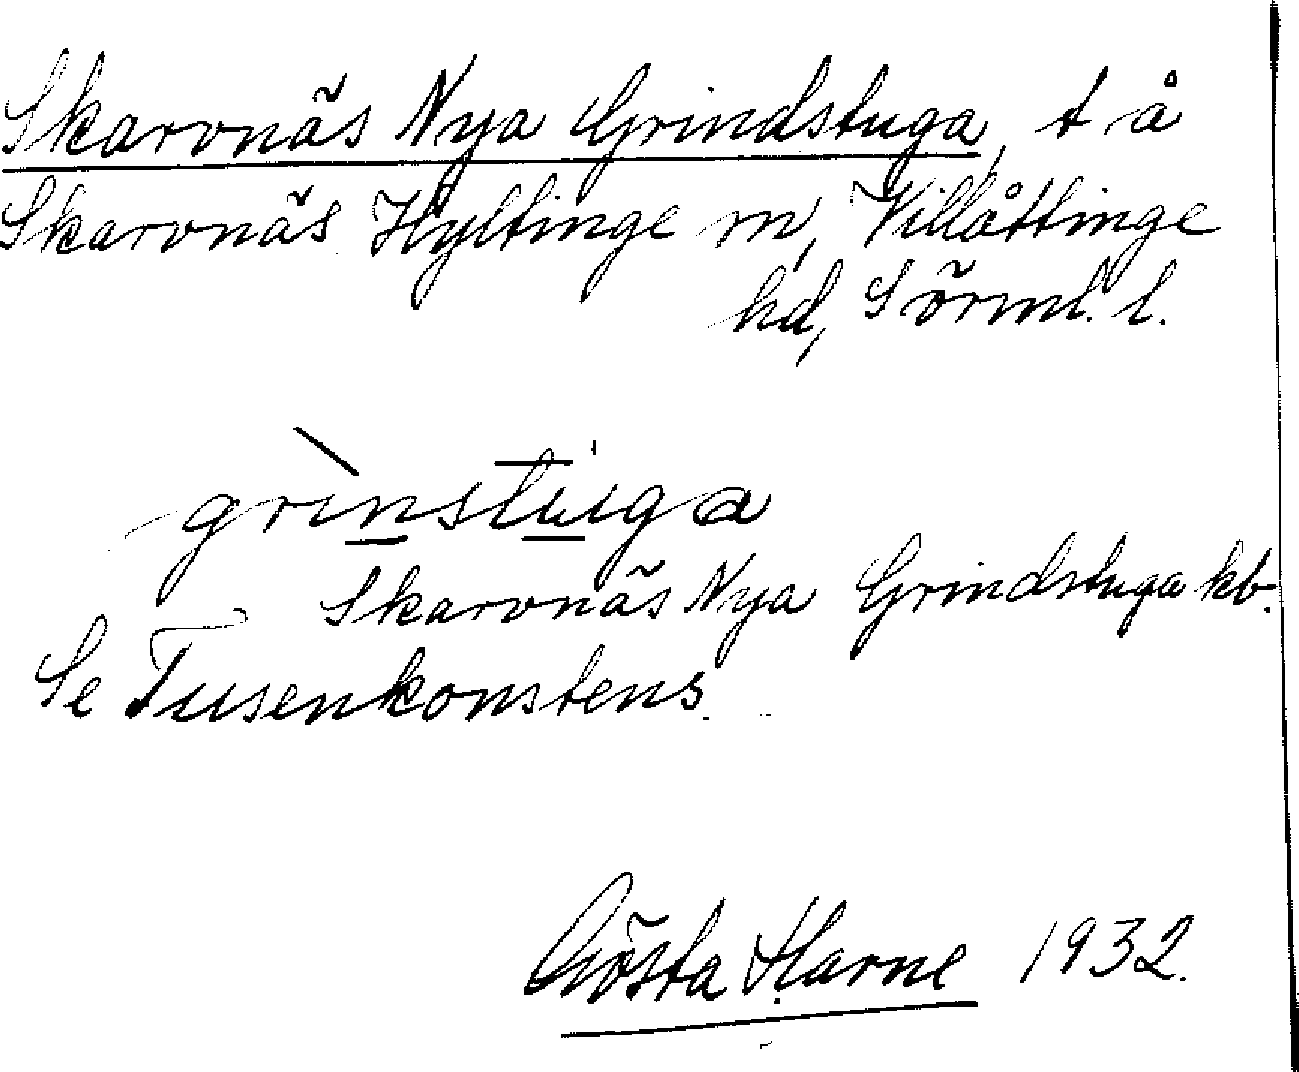 Skarvnäs Nya Grindstuga, t å
Skarvnäs Hyltinge sn, Villåttinge
hd, Sörml. l.
grinstuga
Skarvnäs Nya Grindstuga kb.
Se Tusenkonstens.
Gösta Harne 1932.